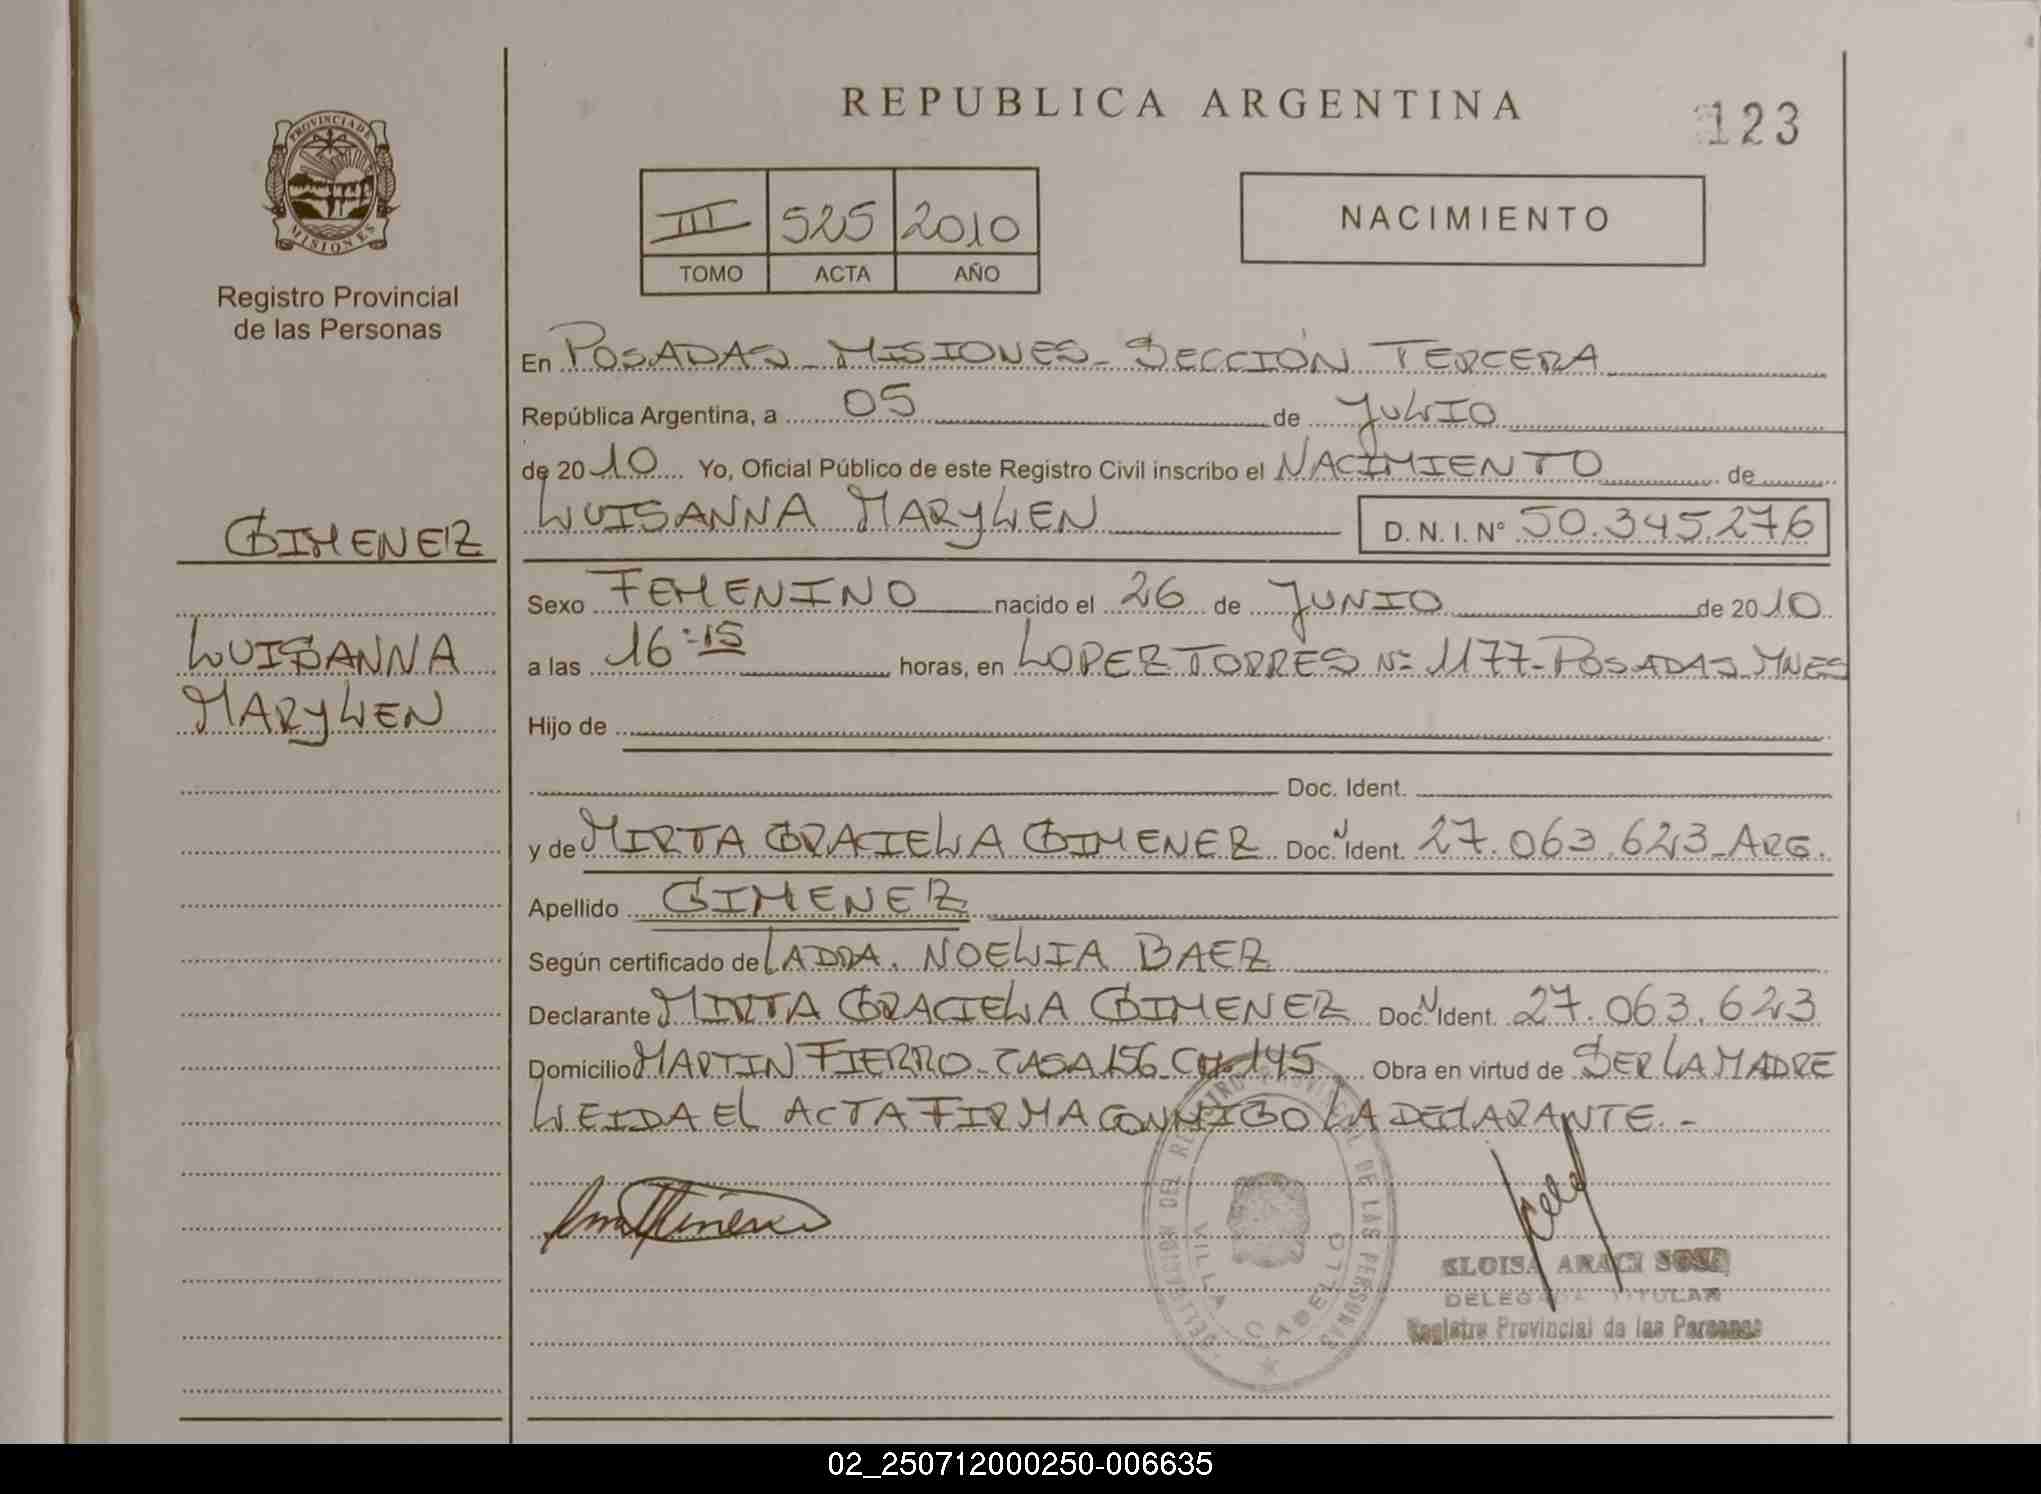 REPUBLICA ARGENTINA
123
PROVINCIA DE
MISIONES
Registro Provincial
de las Personas
III 525 2010
TOMO ACTA AÑO
NACIMIENTO
En POSADAS - MISIONES - SECCIÓN TERCERA
República Argentina, a 05 de JULIO
de 2010 Yo, Oficial Público de este Registro Civil inscribo el NACIMIENTO de
LUISANNA MARYLEN D.N.I. Nº 50.345.276
GIMENEZ
Sexo FEMENINO nacido el 26 de JUNIO de 2010
LUISANNA
a las 16:15 horas, en LOPEZ TORRES Nº 1177 - POSADAS MNES
MARYLEN
Hijo de
Doc. Ident.
y de MIRTA GRACIELA GIMENEZ Doc. N Ident. 27.063.623 - ARG.
Apellido GIMENEZ
Según certificado de LA DRA. NOELIA BAEZ
Declarante MIRTA GRACIELA GIMENEZ Doc. N Ident. 27.063.623
Domicilio MARTIN FIERRO - CASA 156 - CH. 145 Obra en virtud de SER LA MADRE
LEIDA EL ACTA FIRMA CONMIGO LA DECLARANTE. -
DELEGACION DEL REGISTRO PROVINCIAL DE LAS PERSONAS
VILLA CABELLO
ELOISA ARACI SOSA
DELEGADA TITULAR
Registro Provincial de las Personas
02_250712000250-006635